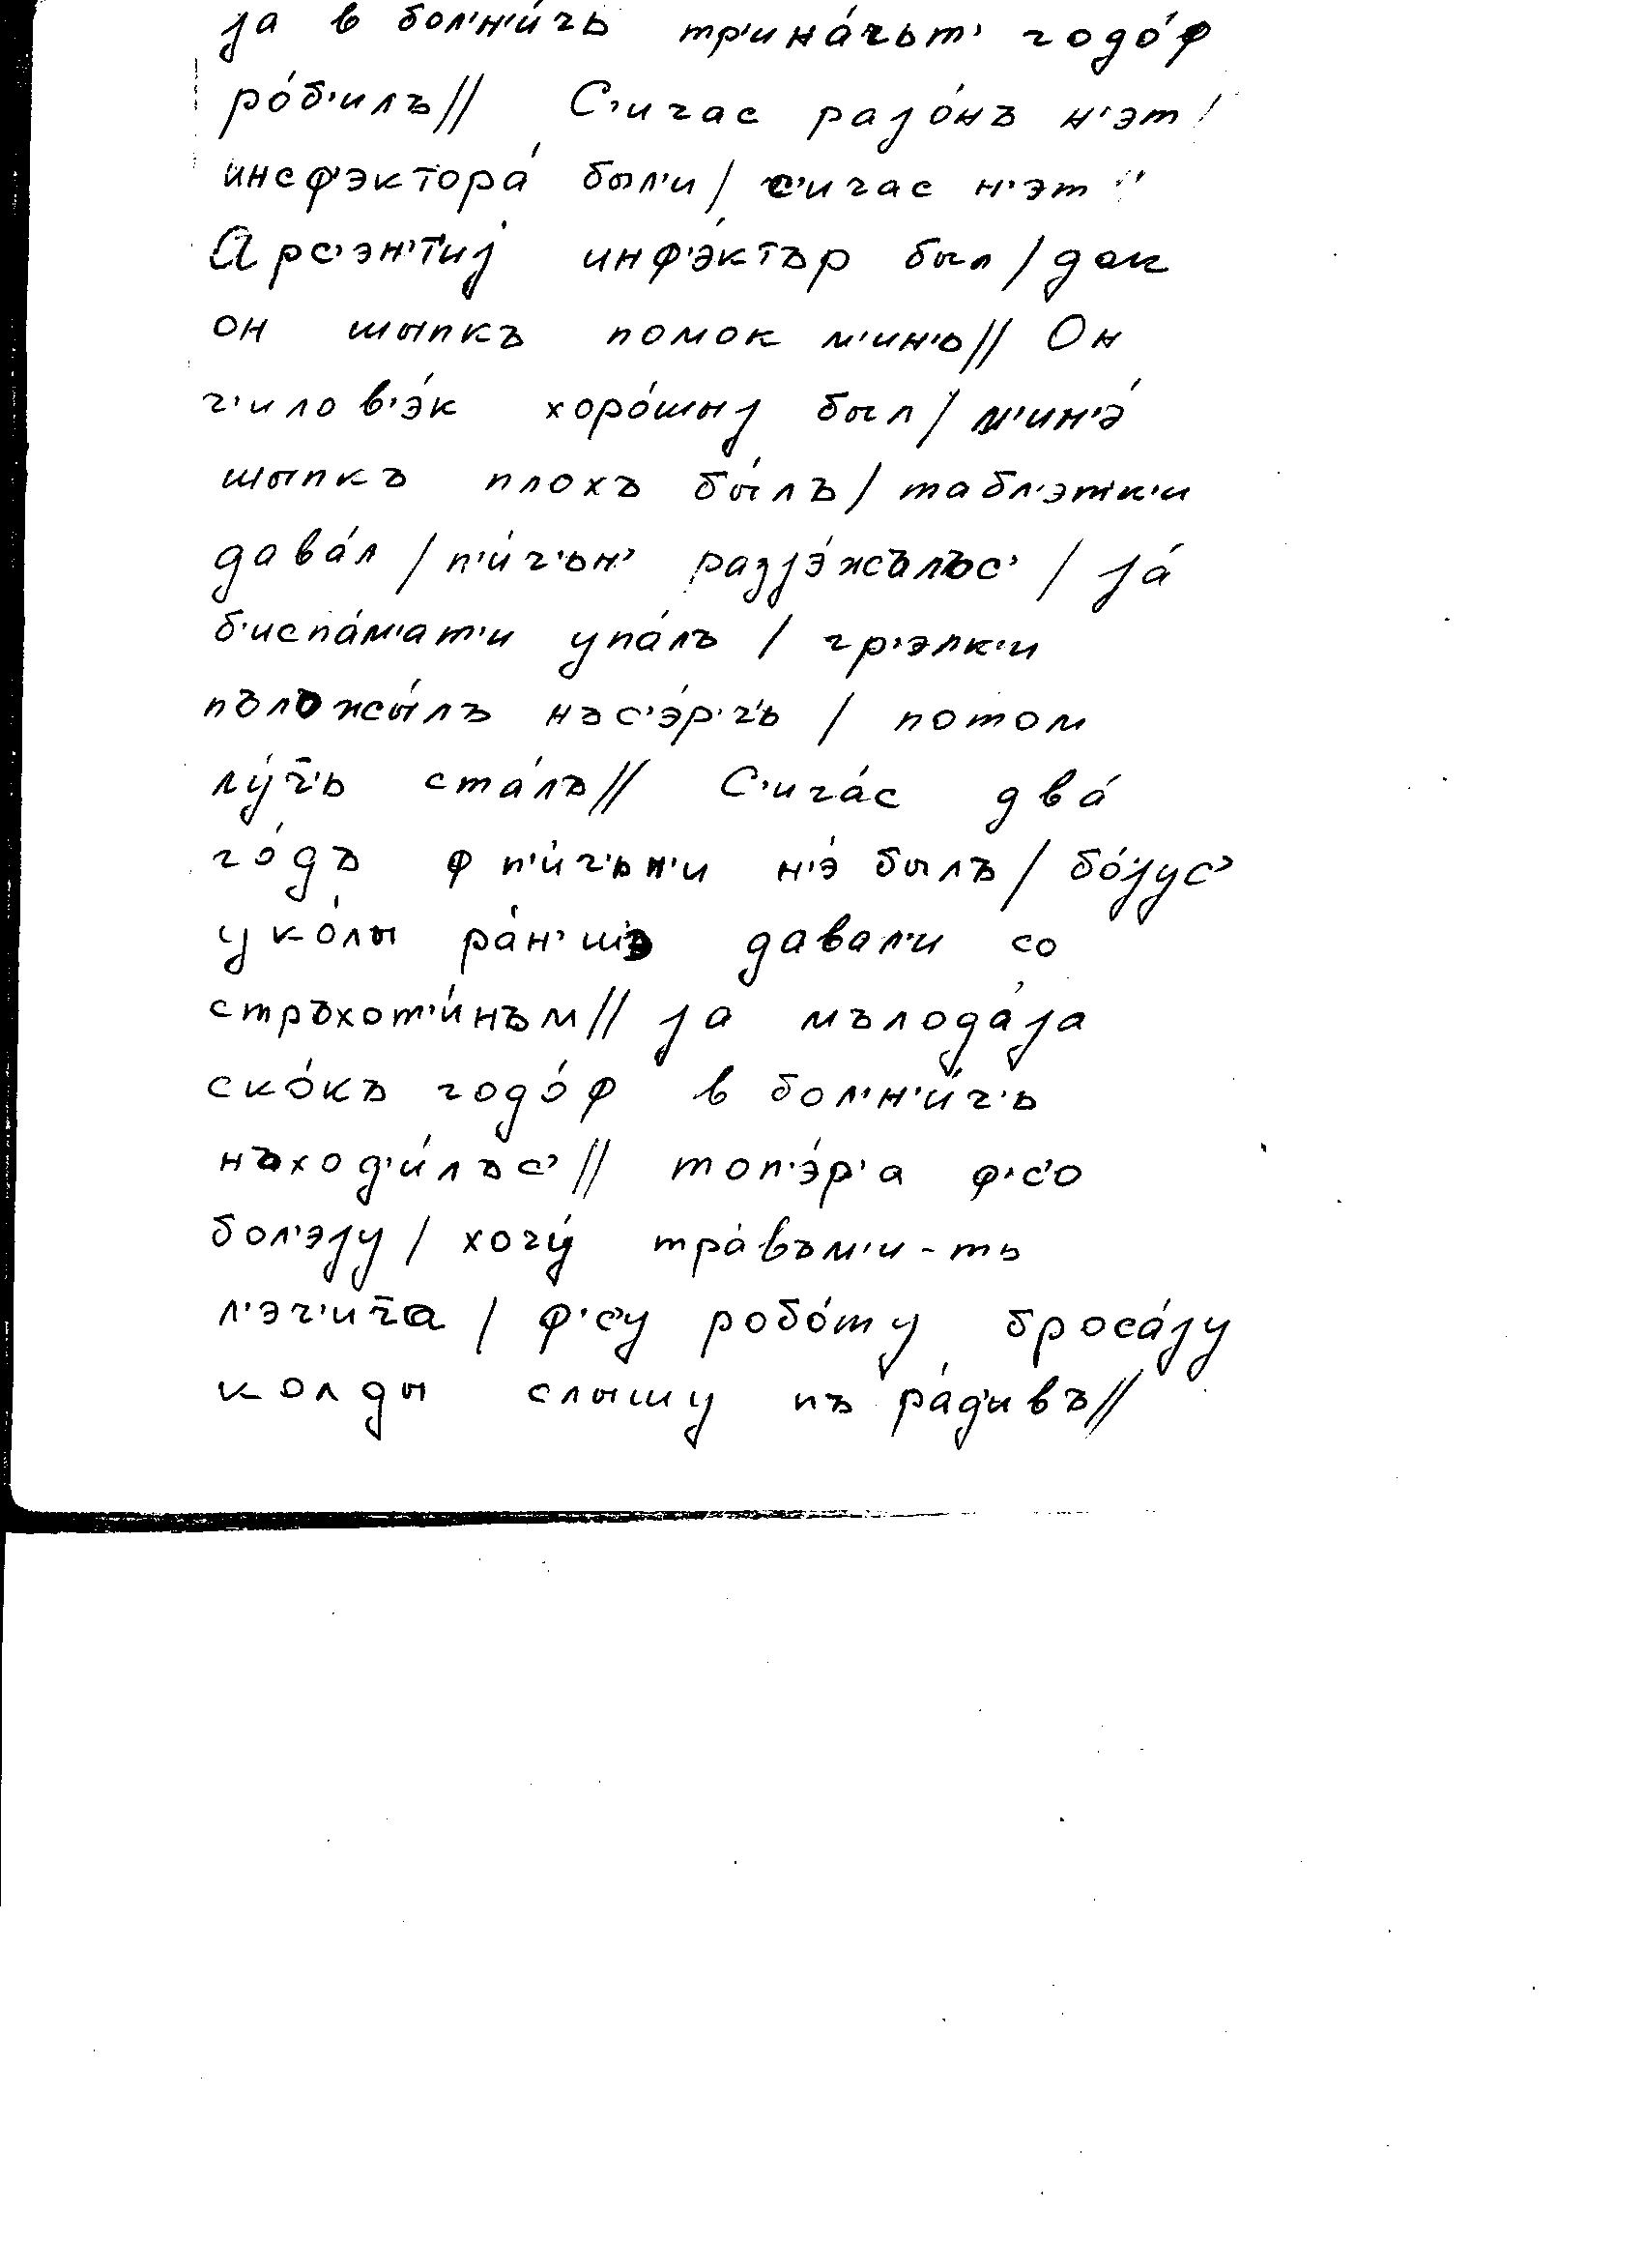 ја в бол'н'и́чь тр'ина́чьт' годо́ф
ро́б'илъ// С'ичас разјо́нъ н'эт/
инсф'эктора́ был'и/ с'ичас н'эт//
Арс'эн'т'иј инф'э́ктър был/ дак
он шыпкъ помок м'ин'ь// Он
ч'илов'э́к хоро́шыј был/ м'ин'э́
шыпкъ плохъ бы́лъ/ табл'этк'и
дава́л/ п'и́ч'ьн' разјэ́жълъс'/ ја́
б'испа́м'ат'и упа́лъ/ гр'элк'и
пъложы́лъ нъс'э́р'ч'ь/ потом
лу́ч'ь ста́лъ// С'ича́с два́
го́дъ ф п'и́ч'ьн'и н'э́ былъ/ бо́јус'
уко́лы ра́н'шъ давал'и со
стръхот'и́нъм// ја мълода́ја
ско́къ годо́ф в бол'н'и́ч'ь
нъход'и́лъс'// топ'э́р'а ф'с'о
бол'эју/ хочу́ тра́въм'и-ть
л'эч'ича/ ф'с'у робо́ту броса́ју
колды слышу пъ ра́д'ивъ//